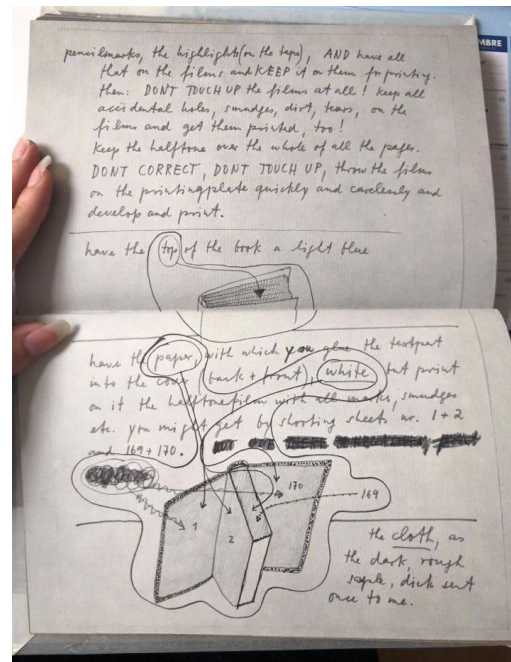 MBRE
pencilmarks, the highlights (on the tape), AND have all
that on the films and KEEP it on them for printing.
then: DONT TOUCH UP the films at all! keep all
accidental holes, smudges, dirt, tears, on the
films and get them printed, too!
keep the halftone over the whole of all the pages.
DONT CORRECT, DONT TOUCH UP, throw the films
on the printingplate quickly and carelessly and
develop and print.
have the top of the book a light blue
have the paper, with which you glue the textpart
into the cover (back + front), white but print
on it the halftonefilm with all marks, smudges
etc. you might get by shooting sheets nr. 1 + 2
and 169 + 170.
170
169
1
2
the cloth, as
the dark, rough
dick sent
once to me.